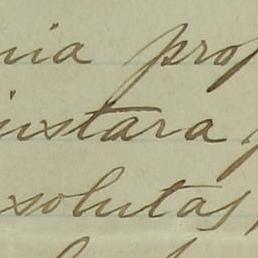 nia prop
justara
solutas,